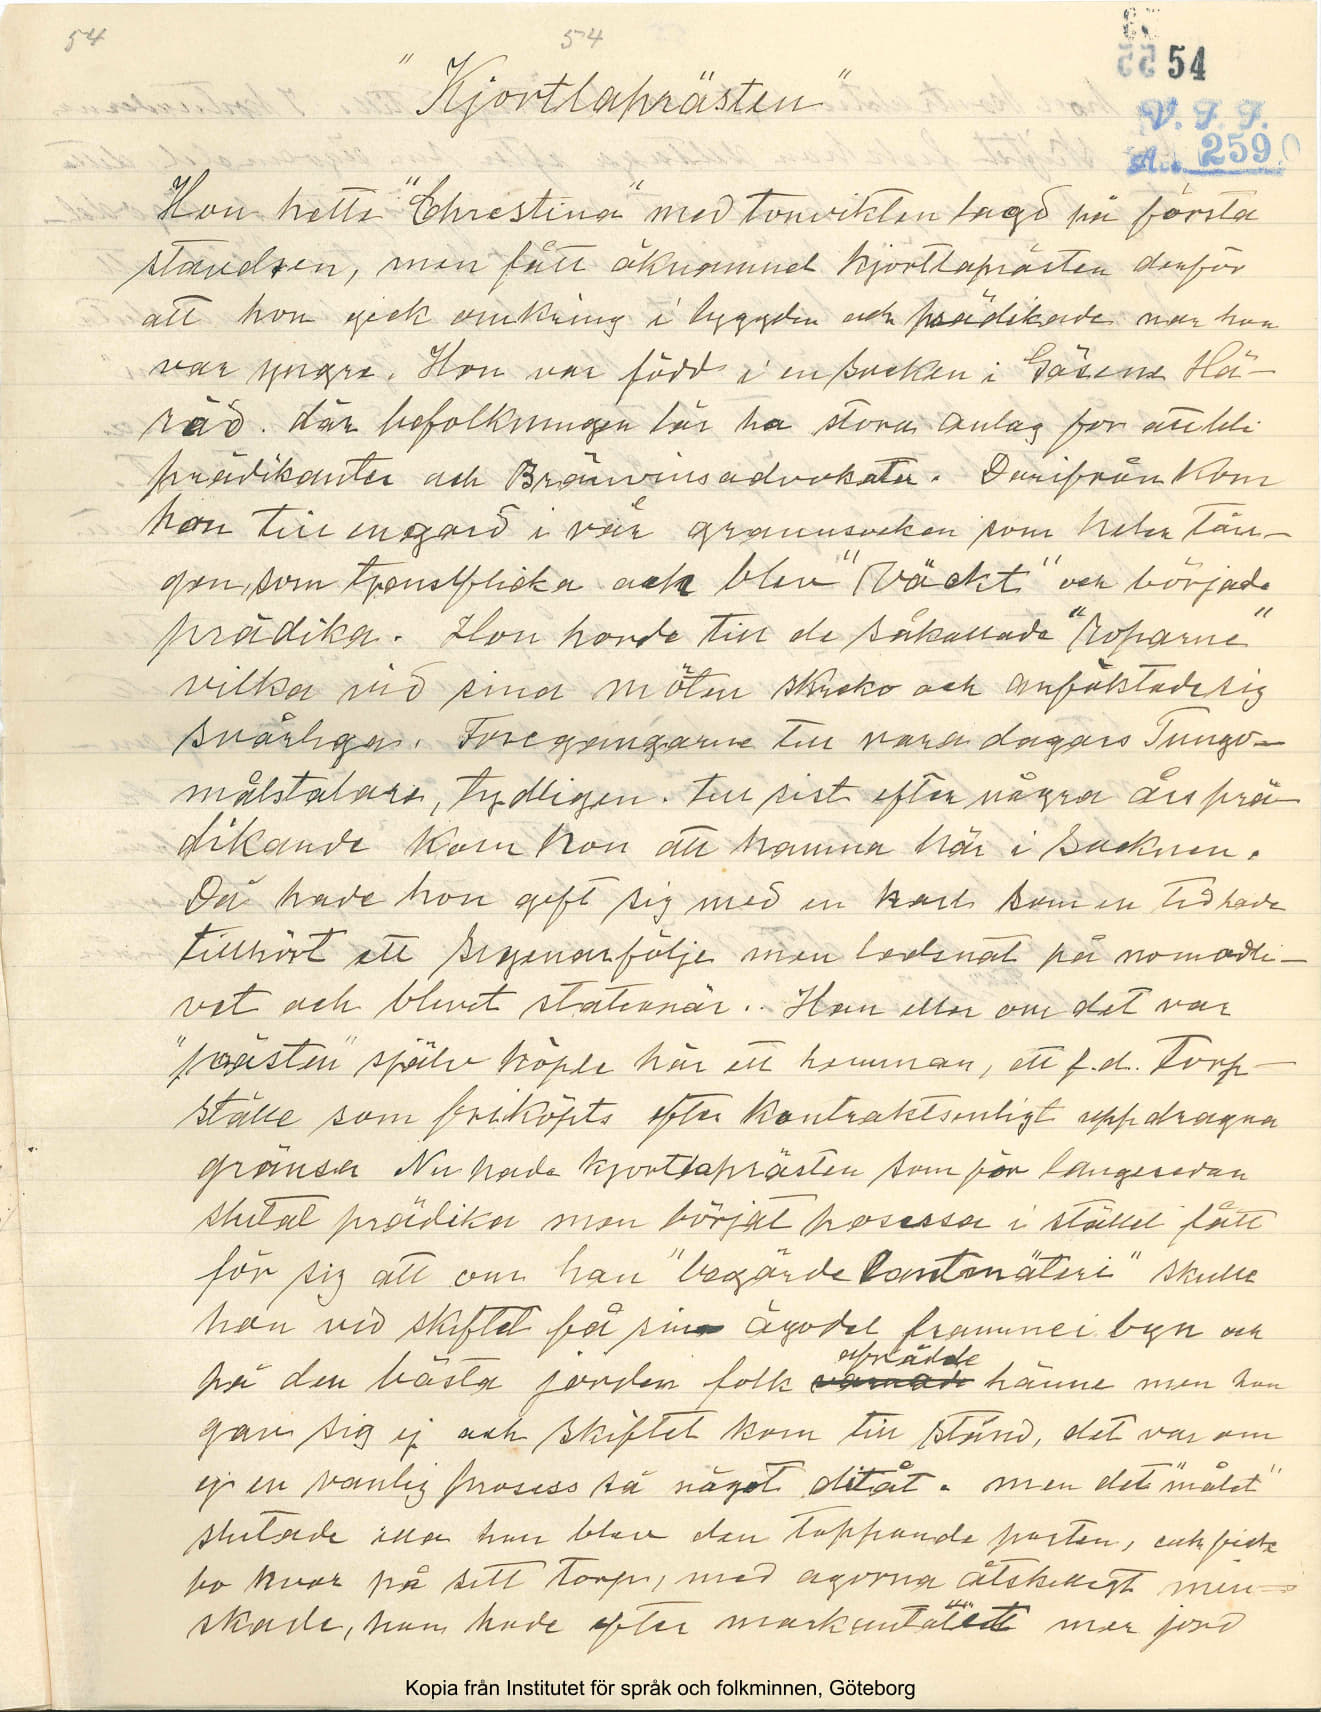 54 54 54
"Kjortlaprästen"
V. F. F.
259
Hon hette "Chrestina" med tonvikten lagd på första
stavelsen, men fått öknamnet kjortlaprästen därför
att hon gick omkring i bygden och prädikade när hon
var yngre. Hon var född i en socken i Gäsene Hä-
räd. där befolkningen lär ha stora anlag för att bli
prädikanter och Brännvinsadvokater. Därifrån kom
hon till en gård i vår grannsocken som heter Tån-
gen, som tjenstflicka och blev "Väckt" och började
prädika. Hon horde till de såkallade "Roparne"
vilka vid sina möten skreko och anfäktade sig
svårliga. Foregangarne till vara dagars Tungo-
målstalare, tydligen. till sist efter några års prä-
dikande kom hon att hamna här i socknen.
Då hade hon gift sig med en karl som en tid hade
tillhört ett zigenarfölje men ledsnat på nomadli-
vet och blivit stationär.. Han eller om det var
"prästen" själv köpte här ett hemman, ett f.d. Torp-
ställe som friköpts efter kontraktsenligt uppdragna
gränser Nu hade kjortlaprästen som för langesedan
slutat prädika men börjat prosessa i stället fått
för sig att om han "begärde Lantmäteri" skulle
hon vid skiftet få sin ägodel framme i byn och
på den bästa jorden folk afrådde hänne men hon
gav sig ej och skiftet kom till stånd, det var om
ej en vanlig prosess så något ditåt. men det "målet"
slutade illa hon blev den tappande parten, och fick
bo kvar på sitt torp, med agorna åtskilligt min-
skade, hon hade efter markens mer jord
Kopia från Institutet för språk och folkminnen, Göteborg